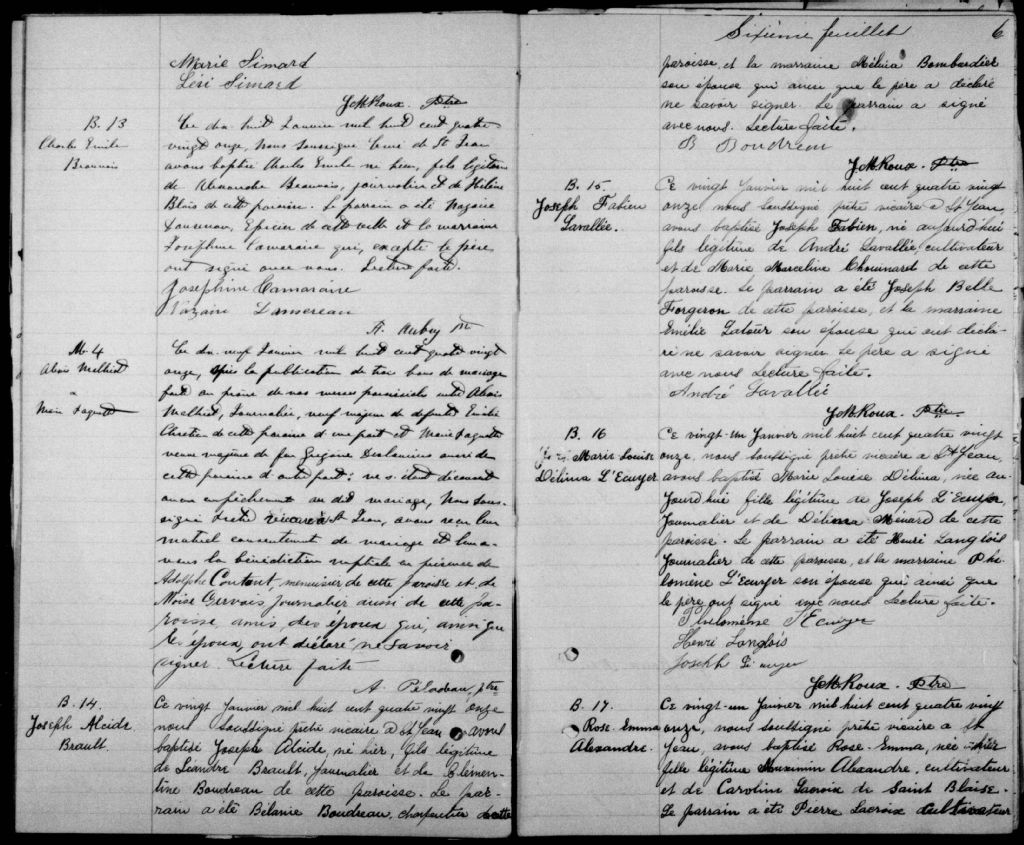 Marie Simard
Lési Simard
J M Roux. Ptre
B. 13
Charles Emile
Beauvais
Ce dix huit Janvier mil huit cent quatre
vingt onze, Nous soussigné Curé de St Jean
avons baptisé Charles Emile né hier, fils légitime
de Alexandre Beauvais, journalier et de Hélène
Blais de cette paroisse. Le parrain a été Nazaire
Epicier de cette ville et la marraine
Josephine Camaraire qui, excepté le père
ont signé avec nous. Lecture faite.
Josephine Camaraire
Nazaire Damereau
A. Aubry Ptre
M. 4
Alexis Melhiot
&
Marie Paquette
Ce dix neuf Janvier mil huit cent quatre vingt
onze, après la publication de trois bans de mariage
faite au prône de nos messes paroissiales entre Alexis
Melhiot, Journalier, veuf majeur de défunte Emilie
Chretien de cette paroisse d'une part et Marie Paquette
veuve majeure de feu Eugène Deslauriers aussi de
cette paroisse d'autre part; ne s'étant découvert
aucun empêchement au dit mariage, Nous sous-
signé Prêtre vicaire à St Jean, avons reçu leur
mutuel consentement de mariage et leur a-
vons la bénédiction nuptiale en présence de
Adolphe Coutout, menuisier de cette paroisse et de
Moise Gervais journalier aussi de cette pa-
roisse, amis des époux qui, ainsi que
les époux, ont déclaré ne savoir
signer. Lecture faite
A. Peladeau, ptre
B. 14.
Joseph Alcide
Brault.
Ce vingt Janvier mil huit cent quatre vingt onze
nous soussigné prêtre vicaire à St Jean avons
baptisé Joseph Alcide, né hier, fils légitime
de Léandre Brault, Journalier et de Clémen-
tine Boudreau de cette paroisse. Le par-
rain a été Bélanie Boudreau, charpentier de cette
Sixième feuillet 6
paroisse, et la marraine Mélina Bombardier
son épouse qui ainsi que le père a déclaré
ne savoir signer. Le parrain a signé
avec nous. Lecture faite.
B Boudreau
J M Roux. Ptre
B. 15.
Joseph Fabien
Lavallée.
Ce vingt Janvier mil huit cent quatre vingt
onze, nous soussigné prêtre vicaire à St Jean,
avons baptisé Joseph Fabien, né aujourd'hui
fils légitime de André Lavallée, cultivateur
et de Marie Marceline Chouinard de cette
paroisse. Le parrain a été Joseph Belle
Forgeron de cette paroisse, et la marraine
Emilie Latour son épouse qui ont décla-
ré ne savoir signer le père a signé
avec nous Lecture faite.
André Lavallée
J M Roux. Ptre
B. 16
Marie Louise
Délima L'Ecuyer
Ce vingt-un Janvier mil huit cent quatre vingt
onze, nous soussigné prêtre vicaire à St Jean,
avons baptisé Marie Louise Délima, née au-
jourd'hui fille légitime de Joseph L'Ecuyer,
Journalier et de Délima Ménard de cette
paroisse. Le parrain a été Henri Langlois
Journalier de cette paroisse, et la marraine Phi-
lomène L'Ecuyer son épouse qui ainsi que
le père, ont signé avec nous Lecture faite.
Philomène L'Ecuyer
Henri Langlois
Joseph L'ecuyer
J M Roux. Ptre
B. 17.
Rose Emma
Alexandre.
Ce vingt-un Janvier mil huit cent quatre vingt
onze, nous soussigné prêtre vicaire à St
Jean, avons baptisé Rose-Emma, née hier
fille légitime Maximin Alexandre, cultivateur
et de Caroline Lacroix de Saint Blaise.
Le parrain a été Pierre Lacroix cultivateur